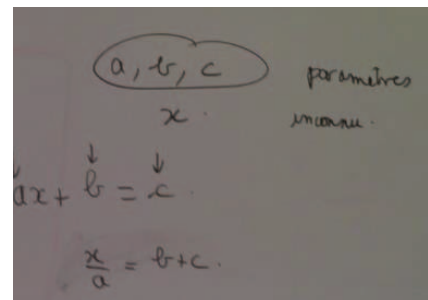 a, b, c paramètres
x. inconnu.
ax + b = c.
x/a = b+c.